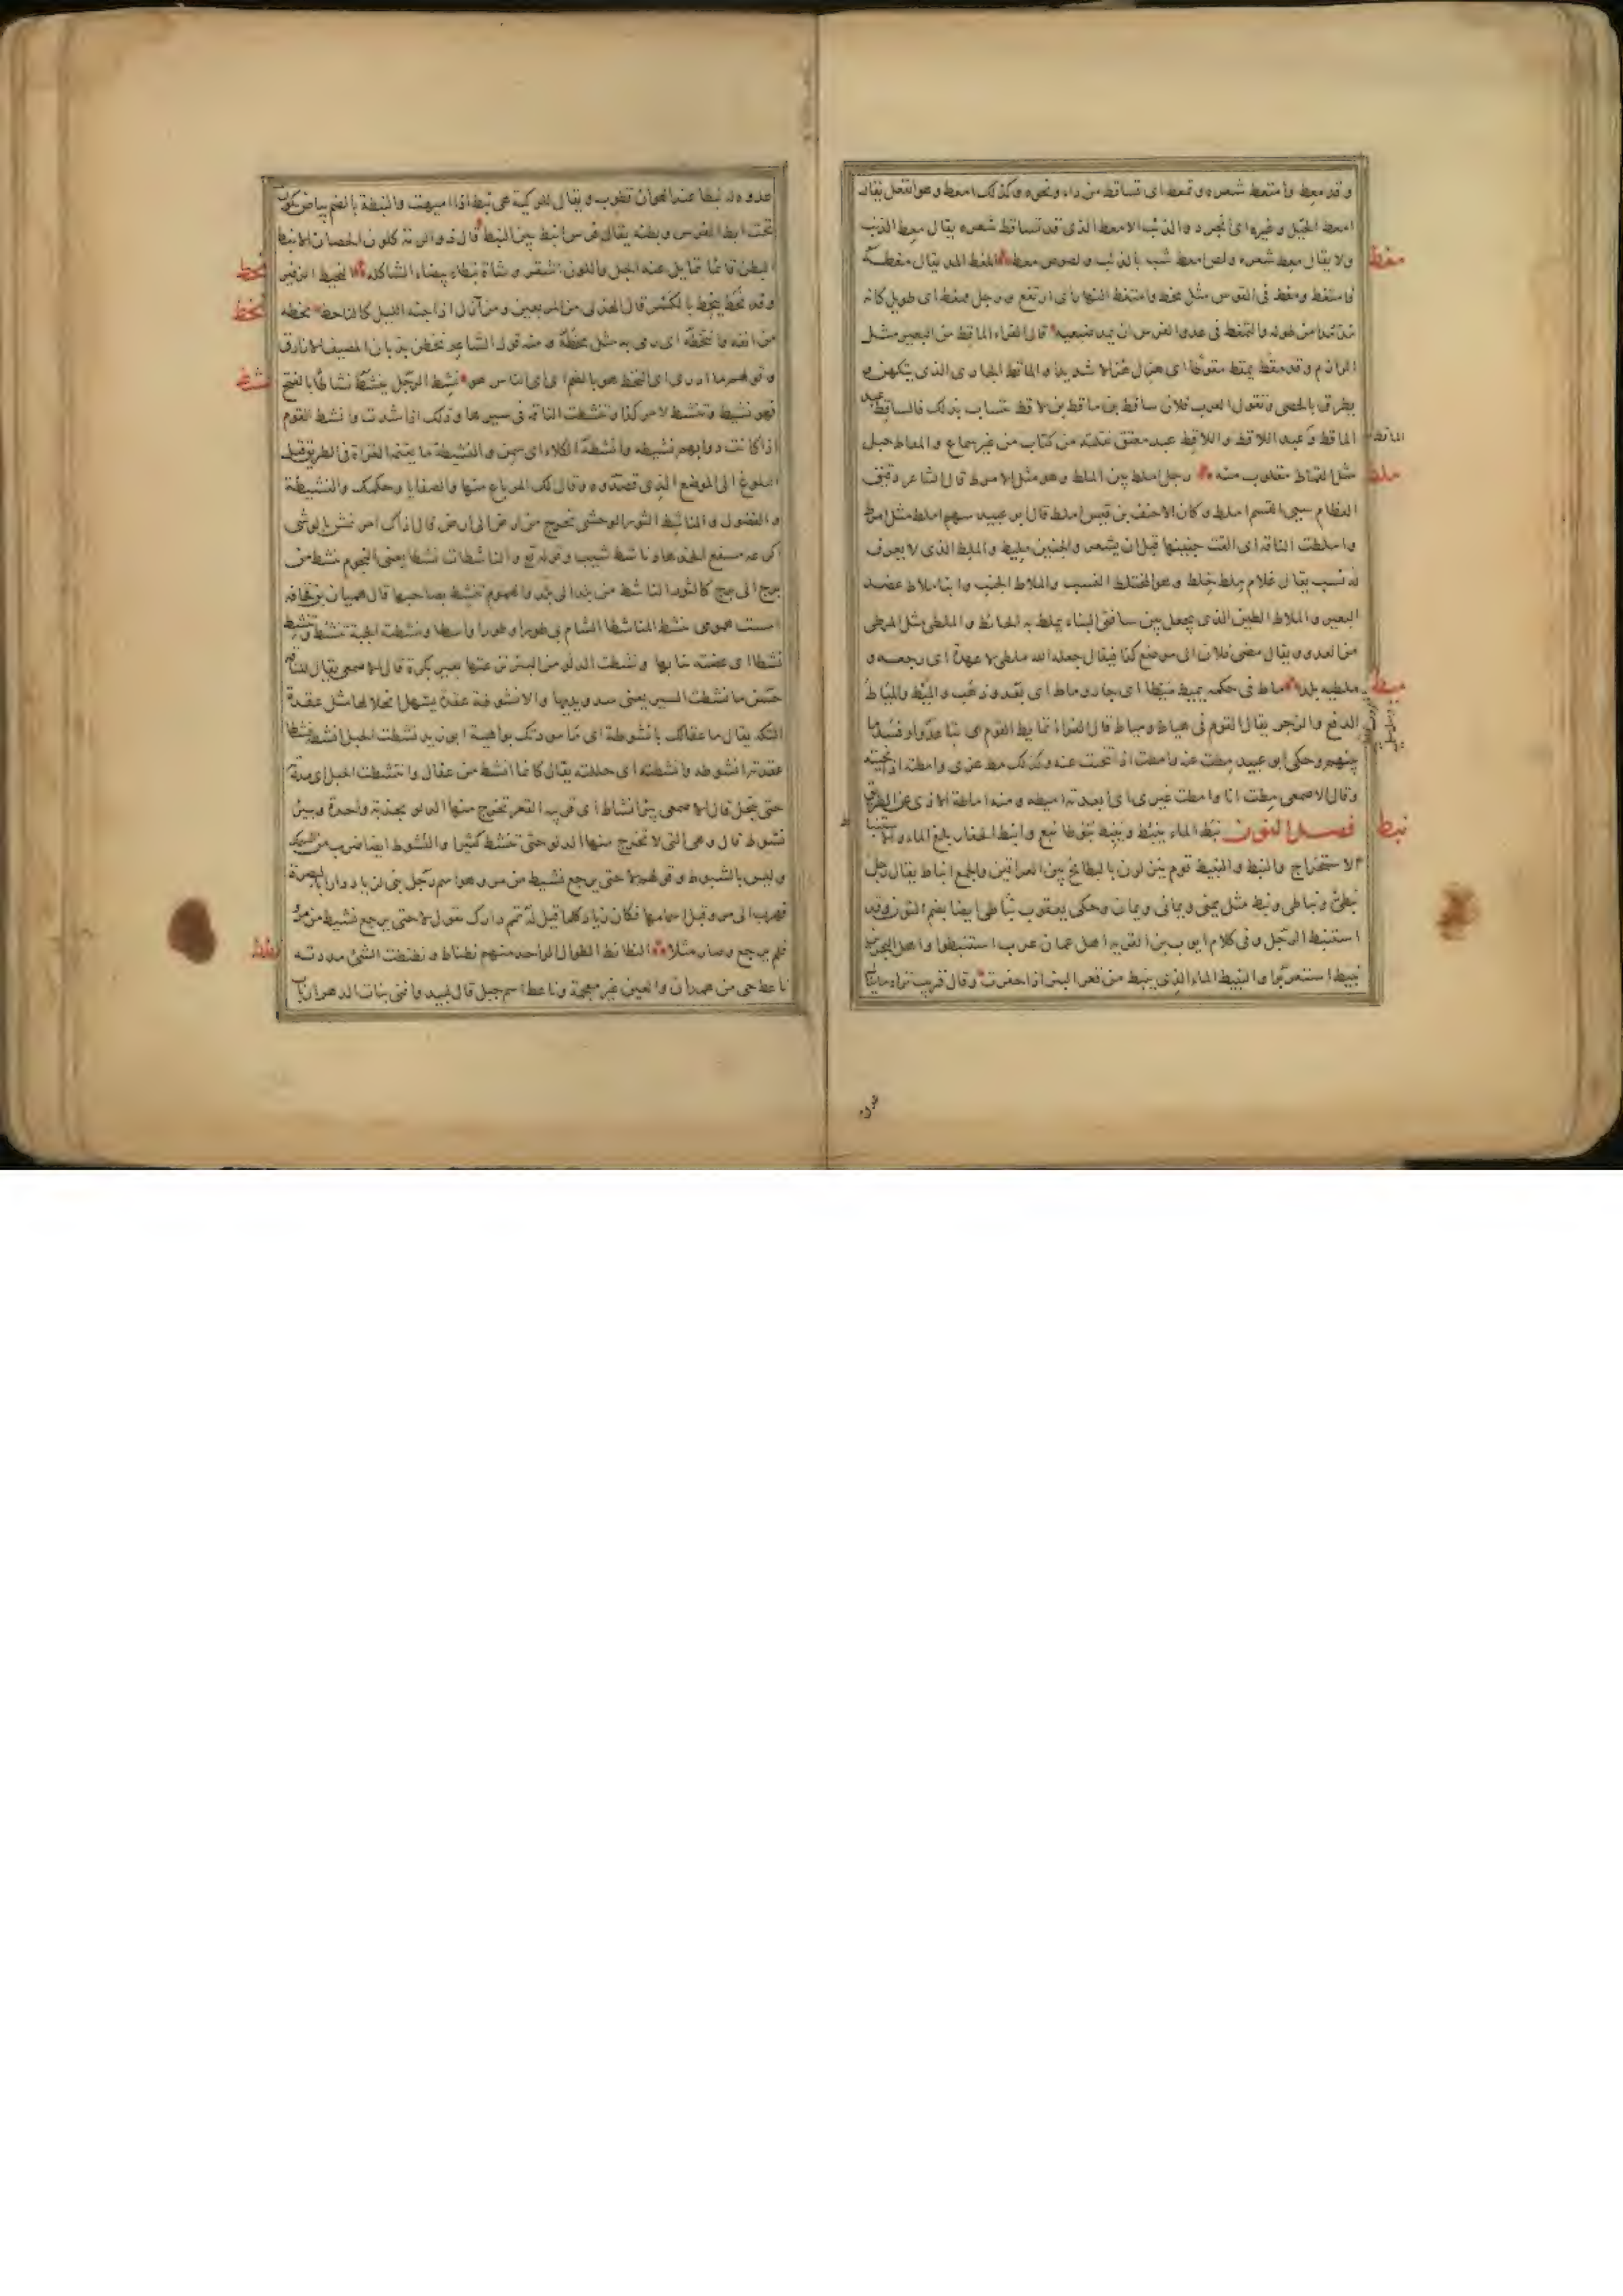 وقد معط وامتعط شعره وتمعط اى تساقط من داء ونحوه وكذلك امعط وهو انفعل يقال
امعط الحبل وغيره اى انجرد والذئب الامعط الذى قد تساقط شعره يقال معط الذئب
ولا يقال معط شعره ولص امعط شبه بالذئب ولصوص معط المغط المد يقال مغطه
مغط
فامتغط ومغط فى القوس مثل مخط وامتغط النهار اى ارتفع ورجل ممغط اى طويل كانه
مد مدا من طوله والتمغط فى عدو الفرس ان يمد ضبعيه قال الفراء الماقط من البعير مثل
الرازم وقد مقط يمقط مقوطا اى هزل هزالا شديدا والماقط الحازى الذى يتكهن و
يطرق بالحصى وتقول العرب فلان ساقط بن ماقط بن لاقط تتساب بذلك فالساقط عبد
الماقط وعبد اللاقط واللاقط عبد معتق نقلته من كتاب من غير سماع والمقاط حبل
الماقط
مثل القماط مقلوب منه رجل املط بين الملط وهو مثل الامرط قال الشاعر
ملط
العظام املط وكان الاحنف بن قيس املط قال ابو عبيد سهم املط مثل امرط
واملطت الناقة اى القت جنينها قبل ان يشعر والجنين مليط والملط الذى لا يعرف
له نسب يقال غلام ملط خلط وهو المختلط النسب والملاط الجنب وابنا ملاط عضد
البعير والملاط الطين الذى يجعل بين سافى البناء يملط به الحائط والملطى مثل المرطى
من العدو ويقال مضى فلان الى موضع كذا فيقال جعله الله ملطى لا عهدة اى لا رجعة و
ملطيه بلد ماط فى حكمه يميط ميطا اى جار وماط اى بعد وذهب والميط والمياط
ميط
الدفع والزجر يقال القوم فى هياط ومياط قال الفراء تمايط القوم اى تباعدوا وفسد ما
بينهم وحكى ابو عبيد مطت عنه وامطت اذا تنحيت عنه وكذلك مطت غيرى وامطته اى نحيته
وقال الاصمعى مطت انا وامطت غيرى اى ابعدته اميطه ومنه اماطة الاذى عن الطريق
فصل النون نبط الماء ينبط وينبط نبوطا نبع وانبط الحفار بلغ الماء والاستنباط
نبط
الاستخراج والنبط والنبيط قوم ينزلون بالبطايح بين العراقين والجمع انباط يقال رجل
نبطى ونباطى ونباط مثل يمنى ويمانى ويمان وحكى يعقوب نباطى ايضا بضم النون وقد
استنبط الرجل وفى كلام ايوب بن القريه اهل عمان عرب استنبطوا واهل البحرين
نبيط استعربوا والنبيط الماء الذى ينبط من قعر البئر اذا حفرت وقال قريب ثراه ما ينال
عدوه له نبطا عند الهوان قطوب ويقال للركية هى نبط اذا اميهت والنبطة بالضم بياض يكون
تحت ابط الفرس وبطنه يقال فرس انبط بين النبط قال ذو الرمة كلون الحصان الانبط
البطن قائما تمايل عنه الجل فاللون اشقر وشاة نبطاء بيضاء الشاكله النحيط الزفير
نحط
وقد نحط ينحط بالكسر قال الهذلى من المربعين ومن آزل اذا جنه الليل كالناحط نخطه
نخط
من انفه وانتخطه اى رمى به مثل مخطه ومنه قول الشاعر نخطن بذبان المصيف الازارق
وقولهم ما ادرى اى النخط هو بالضم اى اى الناس هو نشط الرجل ينشط نشاطا بالفتح
نشط
فهو نشيط وتنشط لامر كذا وتنشطت الناقة فى سيرها وذلك اذا شدت وانشط القوم
اذا كانت دوابهم نشيطه وانشطه الكلاء اى سمن والنشيطة ما يغنمه الغزاة فى الطريق قبل
البلوغ الى الموضع الذى قصدوه وقال لك المرباع منها والصفايا وحكمك والنشيطة
والفضول والناشط الثور الوحشى يخرج من ارض الى ارض قال اذاك ام نمش بالوشى
اكرعه مسفع الخد هاد ناشط شبب وقوله تع والناشطات نشطا يعنى النجوم تنشط من
برج الى برج كالثور الناشط من بلد الى بلد والهموم تنشط بصاحبها قال هميان بن قحافة
امست همومى تنشط المناشطا الشام بى طورا وطورا واسطا ونشطت الحية تنشط وتنشط
نشطا اى عضت بنابها ونشطت الدلو من البئر نزعتها بغير بكرة قال الاصمعى يقال للناقة
حسن ما نشطت السير يعنى سدو يديها والانشوطة عقدة يسهل انحلالها مثل عقدة
التكه يقال ما عقالك بانشوطة اى ما مودتك بواهية ابو زيد نشطت الحبل انشطه نشطا
عقدته انشوطه وانشطته اى حللته يقال كانما انشط من عقال وانتشطت الحبل اى مددته
حتى ينحل قال الاصمعى بئر انشاط اى قريبه القعر تخرج منها الدلو بجذبة واحدة وبئر
نشوط قال وهى التى لا تخرج منها الدلو حتى تنشط كثيرا والنشوط ايضا ضرب من السمك
وليس بالشبوط وقولهم لا حتى يرجع نشيط من مرو هو اسم رجل بنى لزياد دارا بالبصرة
فهرب الى مرو قبل اتمامها فكان زياد كلما قيل له تمم دارك يقول لا حتى يرجع نشيط من مرو
فلم يرجع وصار مثلا النطانط الطوال الواحد منهم نطناط ونطنطت الشئ مددته
نطط
ناعط حى من همدان والعين غير معجمة وناعط اسم جبل قال لبيد وافنى بنات الدهر ارباب